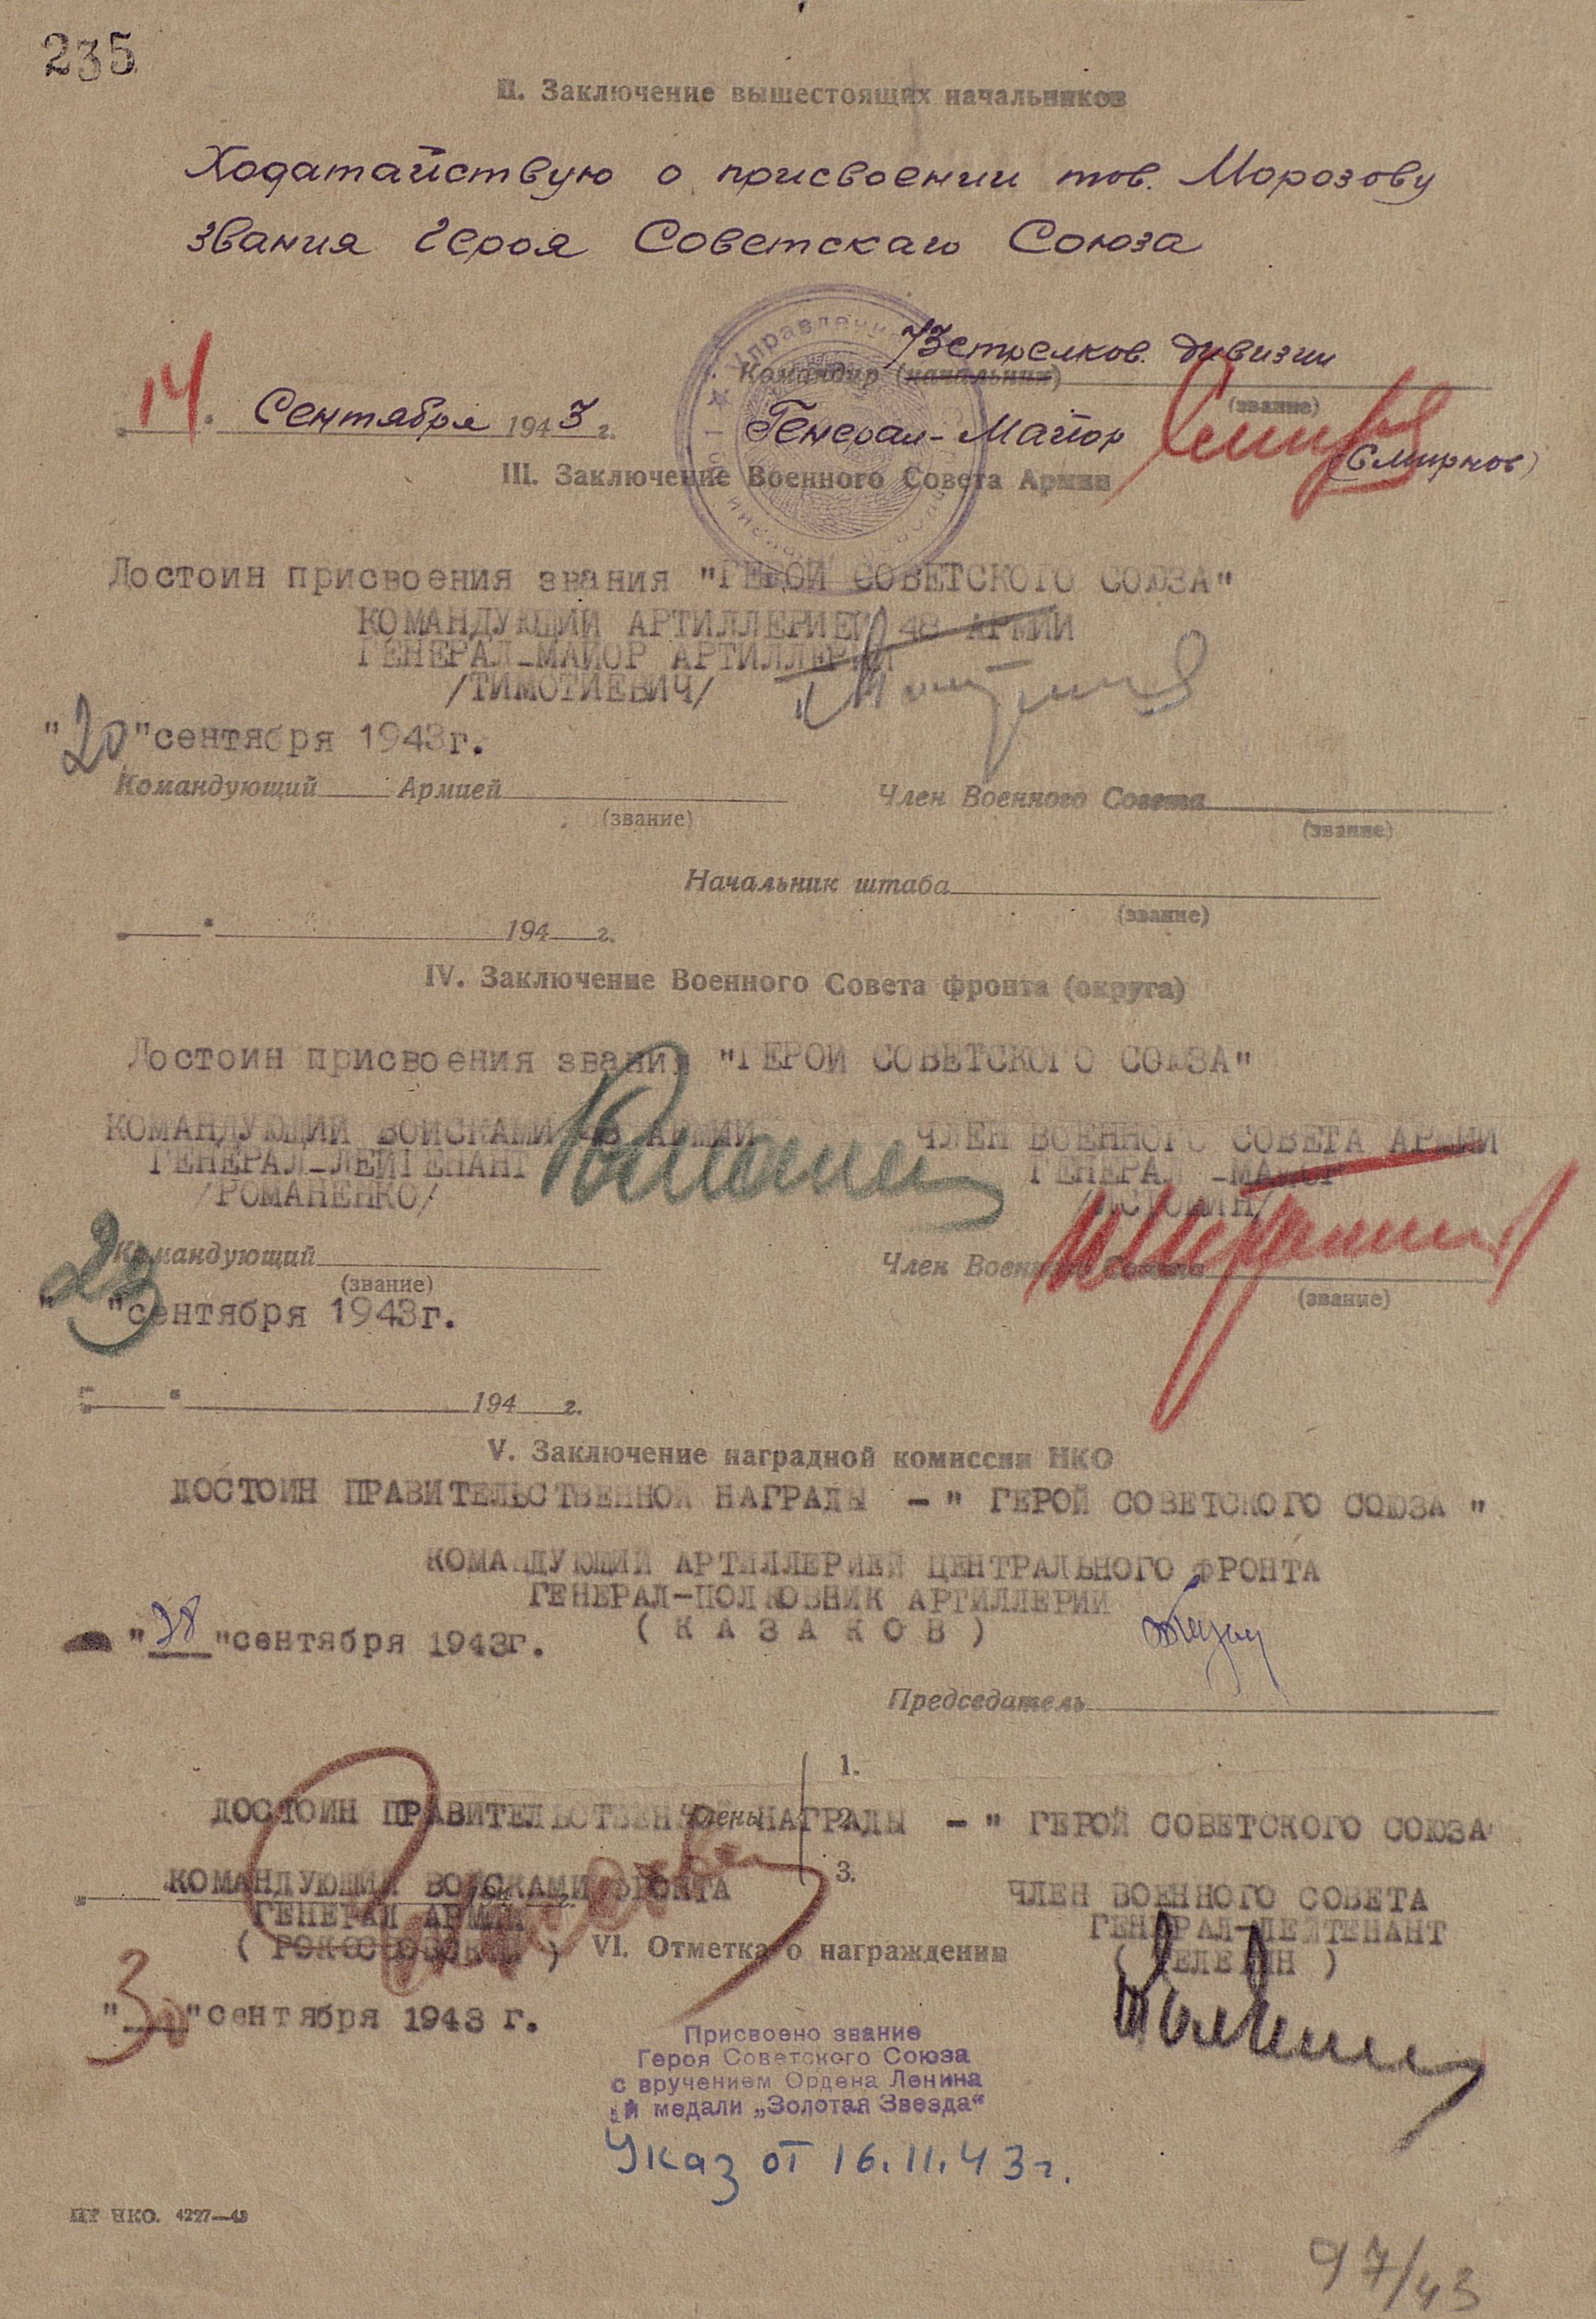 235
II. Заключение вышестоящих начальников
Ходатайствую о присвоении тов. Морозову
звания Героя Советскаго Союза
73 стрелков. дивизии
Командир (начальник)
(звание)
14 Сентября 1943 г.
Генерал-Майор
(Смирнов)
III. Заключение Военного Совета Армии
Достоин присвоения звания "ГЕРОЙ СОВЕТСКОГО СОЮЗА"
КОМАНДУЮЩИЙ АРТИЛЛЕРИЕЙ 48 АРМИИ
ГЕНЕРАЛ-МАЙОР АРТИЛЛЕРИИ
/ТИМОТИЕВИЧ/
"20" сентября 1943г.
Командующий Армией
(звание)
Член Военного Совета
(звание)
Начальник штаба
(звание)
194 г.
IV. Заключение Военного Совета фронта (округа)
Достоин присвоения звания "ГЕРОЙ СОВЕТСКОГО СОЮЗА"
КОМАНДУЮЩИЙ ВОЙСКАМИ 48 АРМИИ
ГЕНЕРАЛ-ЛЕЙТЕНАНТ
/РОМАНЕНКО/
ЧЛЕН ВОЕННОГО СОВЕТА АРМИИ
ГЕНЕРАЛ-МАЙОР
/ИСТОМИН/
Командующий
(звание)
Член Военного Совета
(звание)
"23" сентября 1943г.
194 г.
V. Заключение наградной комиссии НКО
ДОСТОИН ПРАВИТЕЛЬСТВЕННОЙ НАГРАДЫ - " ГЕРОЙ СОВЕТСКОГО СОЮЗА "
КОМАНДУЮЩИЙ АРТИЛЛЕРИЕЙ ЦЕНТРАЛЬНОГО ФРОНТА
ГЕНЕРАЛ-ПОЛКОВНИК АРТИЛЛЕРИИ
( К А З А К О В )
"28" сентября 1943г.
Председатель
1.
ДОСТОИН ПРАВИТЕЛЬСТВЕННОЙ НАГРАДЫ - " ГЕРОЙ СОВЕТСКОГО СОЮЗА
Члены
2.
3.
КОМАНДУЮЩИЙ ВОЙСКАМИ ФРОНТА
ГЕНЕРАЛ АРМИИ
( РОКОССОВСКИЙ )
ЧЛЕН ВОЕННОГО СОВЕТА
ГЕНЕРАЛ-ЛЕЙТЕНАНТ
( ТЕЛЕГИН )
VI. Отметка о награждении
"30" сентября 1943 г.
Присвоено звание
Героя Советского Союза
с вручением Ордена Ленина
и медали „Золотая Звезда“
Указ от 16.11.43г.
ЦТ НКО. 4227—43
97/43